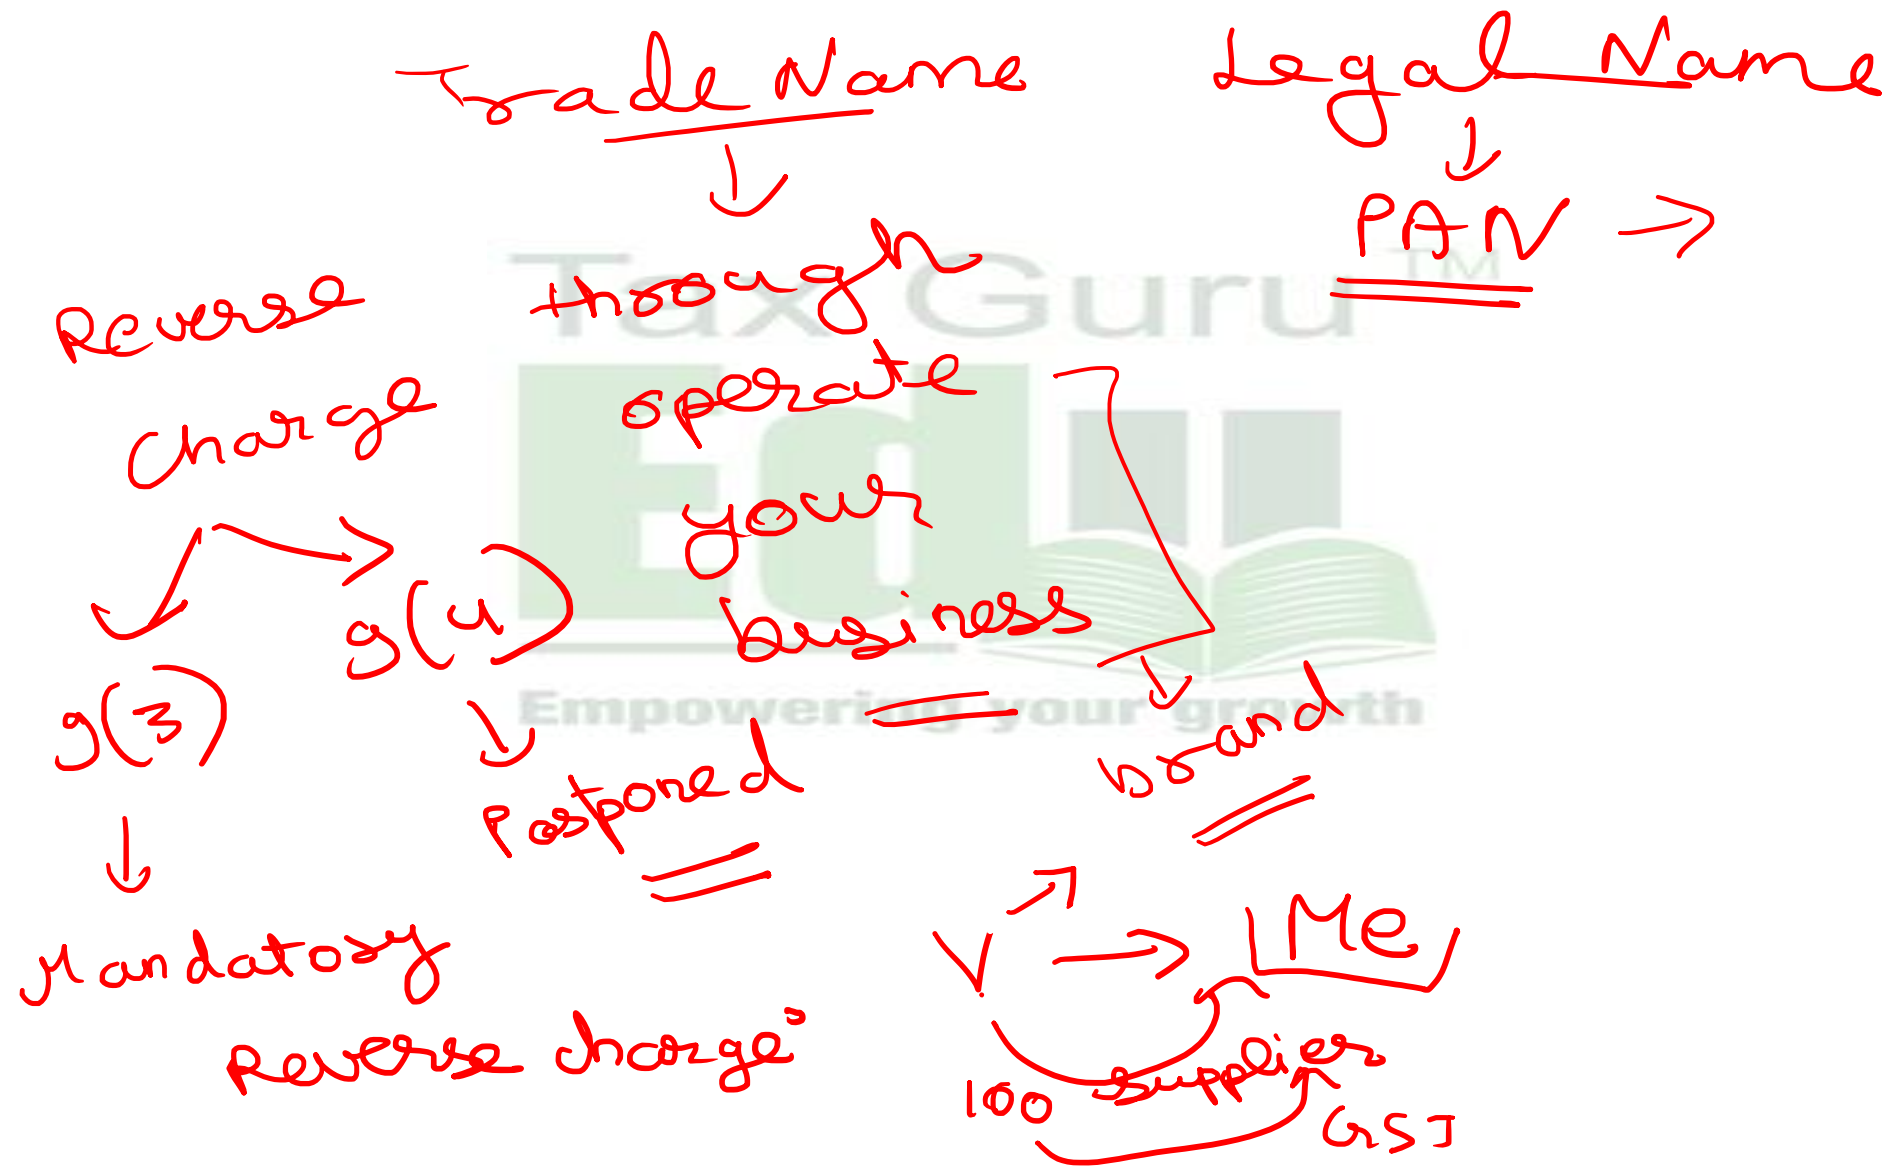 Trade Name
Legal Name
PAN
through
operate
your
business
brand
Reverse
Charge
9(3)
9(4)
Postponed
Mandatory
Reverse charge
V
Me
Supplier
100
GST
Tax Guru™
Edu
Empowering your growth